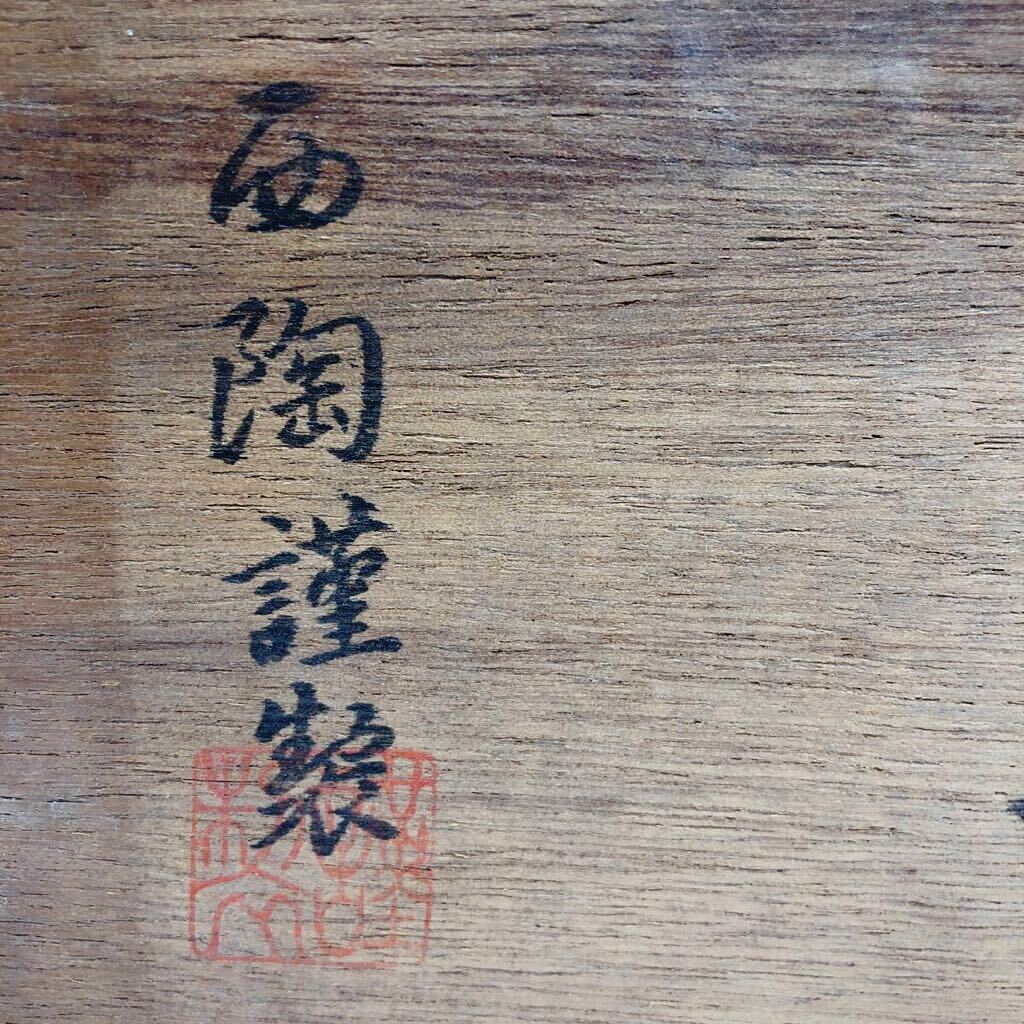 西陶謹製